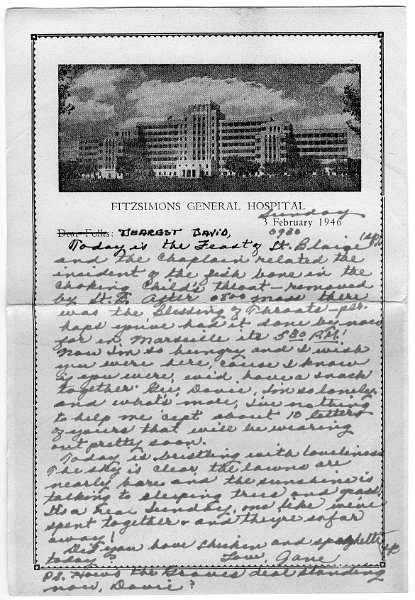 FITZSIMONS GENERAL HOSPITAL
Sunday
3 February 1946
Dear Folks: DEAREST DAVID, 0930
Today is the Feast of St. Blaise
and the Chaplain related the
incident of the fish bone in the
choking child's throat - removed
by St. B. After 0800 mass there
was the Blessing of Throats - per-
haps you've had it done by now
for in Marseille its 5:30 P.M.!
Now I'm so hungry and I wish
you were here, 'cause I know
if you were, we'd have a snack
together. Gee, Davie, I'm so lonely
and what's more, I've no thing
to help me 'cept about 10 letters
of yours that will be wearing
out pretty soon.
Today is bristling with loveliness
The sky is clear, the lawns are
nearly bare and the sunshine is
talking to sleeping trees and grass.
It's a real Sunday, one like we've
spent together - and they're so far
away!
Did you have chicken and spaghetti
today? Love, Jane
P.S. How's the Graves deal standing
now, Davie?